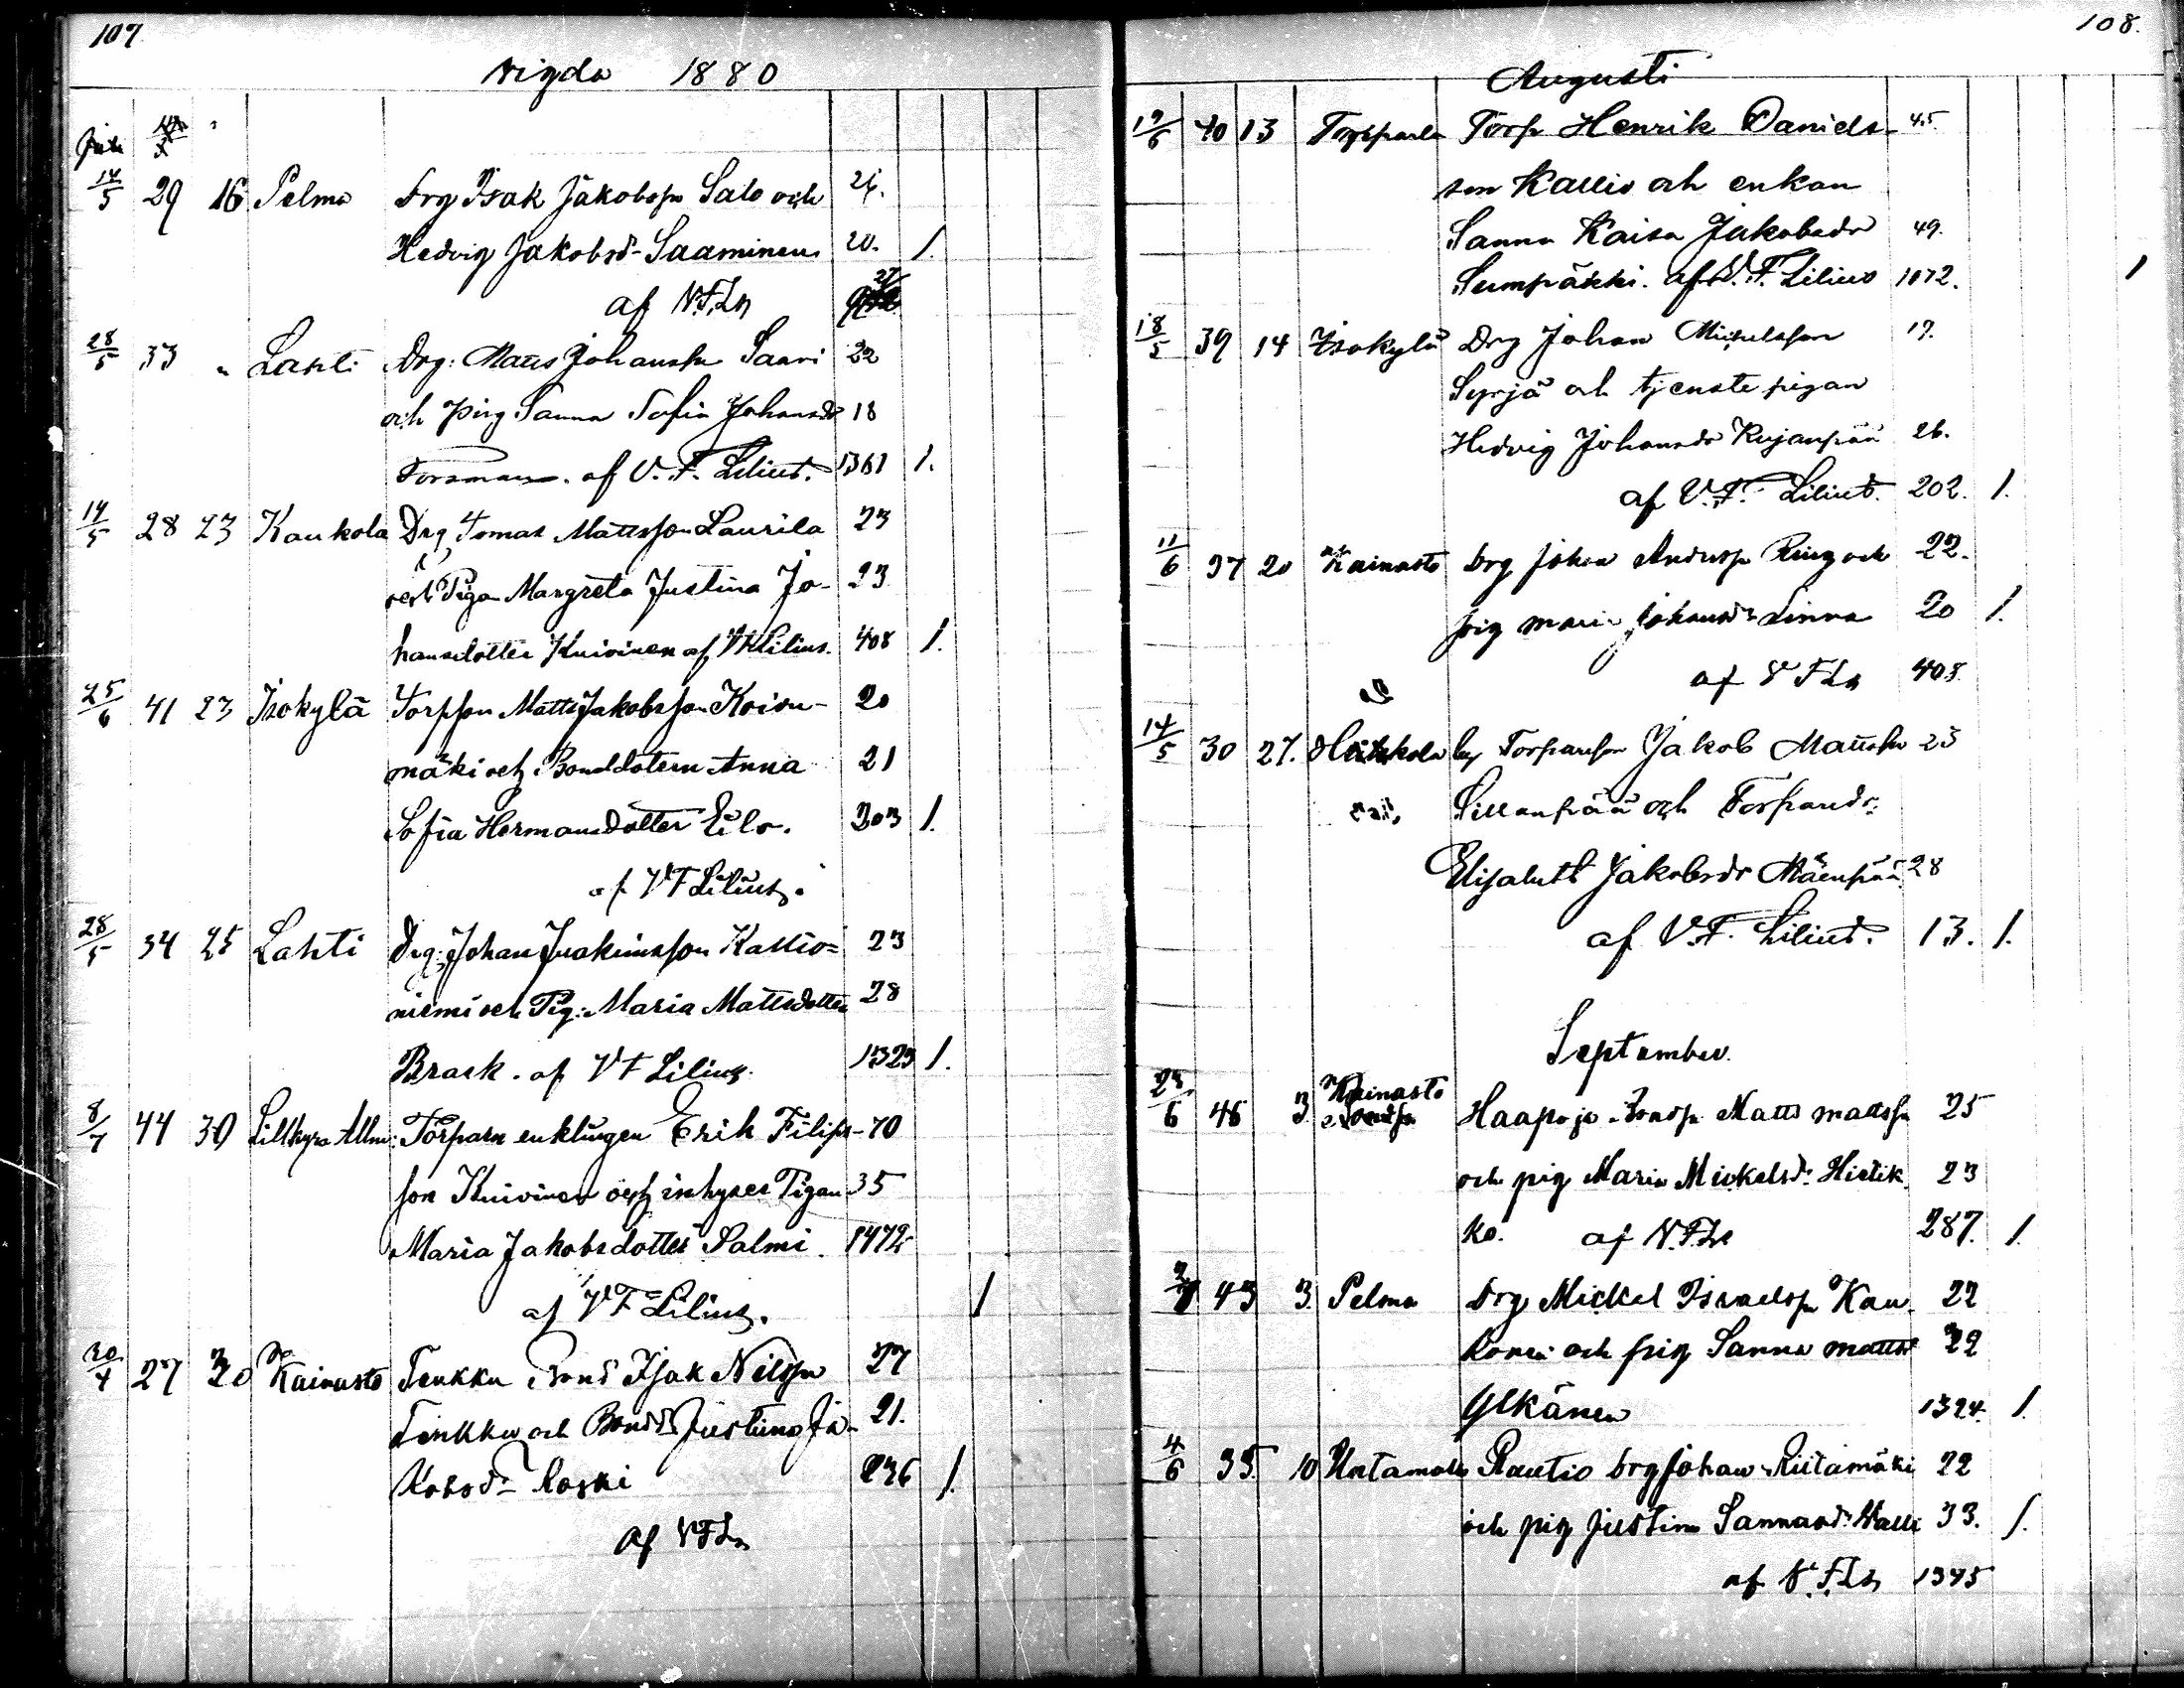 107.
Vigda 1880
Juli
14/5 29 16 Pelma Drg Isak Jakobsson Salo och 24.
Hedvig Jakobsd:r Saaminen 20. 1.
af V.F.Ls
28/5 33 " Lahti Drg: Matts Johansson Saari 22
och Pig Sanna Sofia Johansdr 18
Forsman. af V. F. Lilius. 1361 1.
14/5 28 23 Kaukola Drg Tomas Mattsson Laurila 23
och Pigan Margreta Justina Jo- 23
hansdotter Knivinen af VFLilius. 408 1.
25/6 41 23 Isokylä Torpson Matts Jakobsson Koivu- 20
mäki och Bonddotern Anna 21
Sofia Hermansdotter Eilo. 203 1.
af VF Lilius.
28/5 34 25 Lahti Drg: Johan Joakimsson Kallio- 23
niemi och Pig: Maria Mattsdotter 28
Brask. af VF Lilius. 1323 1.
8/7 44 30 Lillkyro Allm: Torparn enklingen Erik Filips- 70
son Knivinen och inhyses Pigan 35
Maria Jakobsdotter Palmi. 1472
af VF Lilius. 1
30/4 27 30 Kainasto Tenkku Bond Isak Nilsson 27
Tenkku och Bondd Justina Ja- 21.
kobsd:r Koski 236 1.
af VFLs
108.
Augusti
12/6 40 13 Torp Henrik Daniels- 45.
son Kallio och enkan
Sanna Kaisa Jakobsdr 49.
Lumpäkki. af V. F. Lilius 1072. 1
18/5 39 14 Isokylä Drg Johan Michelsson 19.
Syrjä och tjenste pigan
Hedvig Johansdr Kujanpää 26.
af V. F. Lilius. 202. 1.
11/6 37 20 Kainasto Drg Johan Andersson Ring och 22.
pig Maria Johansdr Linna 20 1.
af V F Ls 408.
14/5 30 27. Torparson Jakob Mattsson 25
Sillanpää och Torpardr:
Elisabeth Jakobsdr Mäenpää 28
af V. F. Lilius. 13. 1.
September.
23/6 46 3 Kainasto Haapoja Bondson Matts Mattsson 25
och pig Maria Mickelsd:r Hietik 23
ko. af V.F.Ls 287. 1.
43 3. Pelma Drg Mickel Israelsson Kau- 22
konen och pig Sanna Mattsd 22
Ylkänen 1324. 1.
4/6 35 10 Untamala Rautio drg Johan Riitamäki 22
och pig Justina Sannasd:r Walli 33. 1.
af V.F.Ls 1345